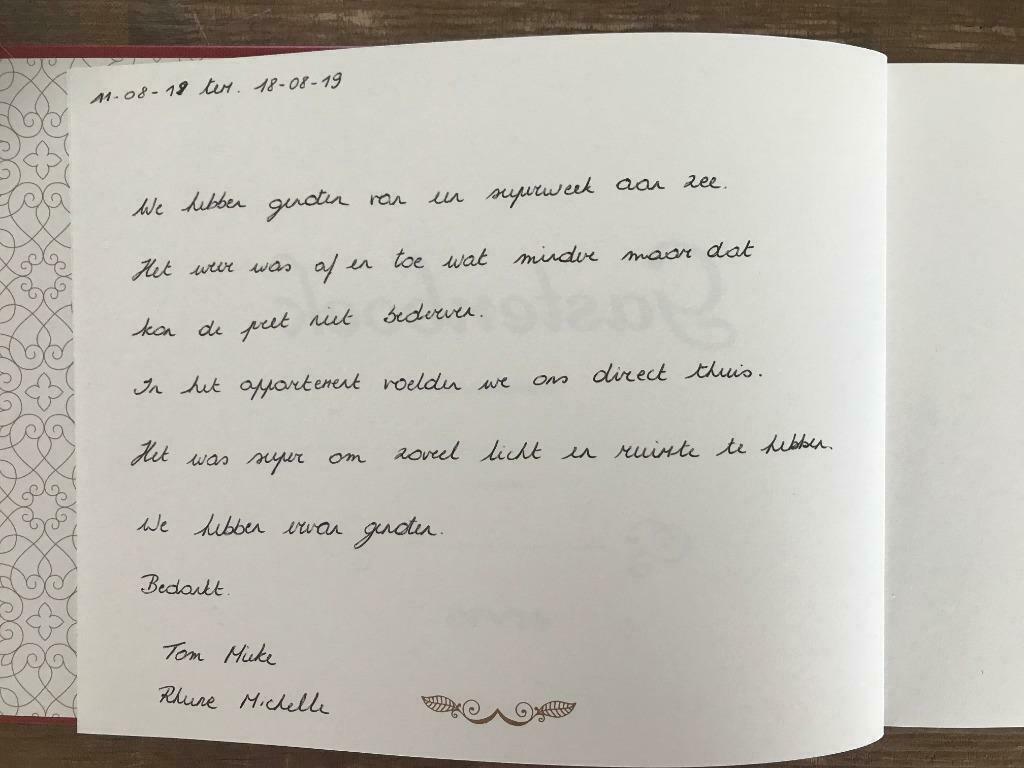 11-08-19 tem. 18-08-19
We hebben genoten van een superweek aan zee.
Het weer was af en toe wat minder maar dat
kon de pret niet bederven.
In het appartement voelden we ons direct thuis.
Het was super om zoveel licht en ruimte te hebben.
We hebben ervan genoten.
Bedankt.
Tom Mieke
Rhune Michelle
Gastenboek